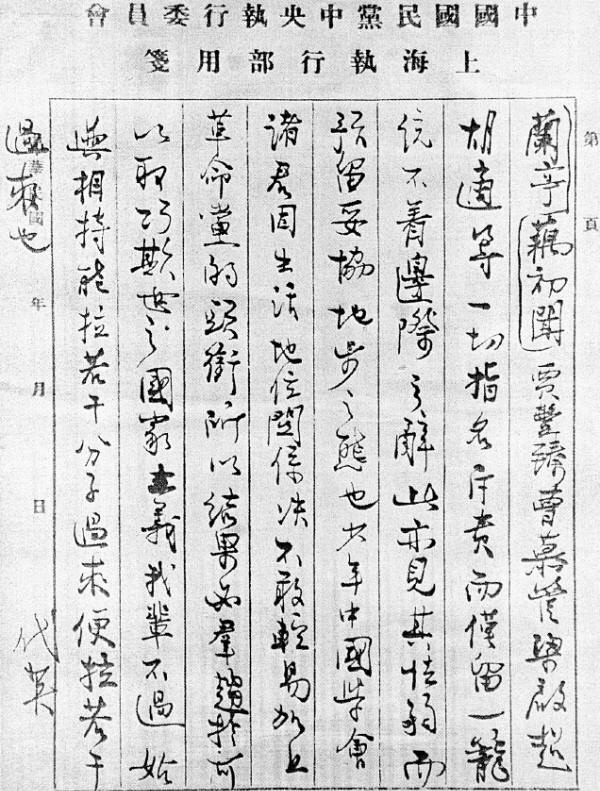 中國國民黨中央執行委員會
上海執行部用箋
第 頁
蘭亭藕初賈豐臻曹慕管梁啟超
胡適等一切指名斥責而僅留一籠
統不着邊際之辭此亦見其怯弱而
預留妥協地步之態也少年中國學會
諸君因生活地位關係決不敢輕易加上
革命黨的頭銜所以結果必羣趨於可
以取巧欺世之國家主義我輩不過姑
與相持能拉若干分子過來便拉若干
過來也
華民國 年 月 日
代英